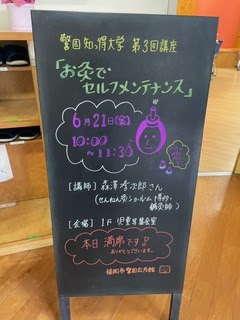 警固知っ得大学 第3回講座
「お灸で
セルフメンテナンス」
6月21日(金)
10:00
～11:30
[講師] 森澤 次郎さん
(せんねん灸ショールーム博多・
鍼灸師)
[会場] 1F 児童等集会室
本日 満席です!
ありがとうございます。
福岡市警固公民館